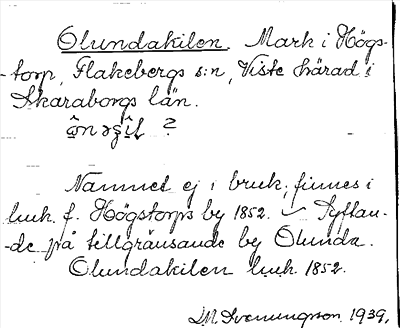 Olundakilen. Mark i Högs-
-torp, Flakebergs s:n, Viste härad i
Skaraborgs län.
Namnet ej i bruk. finnes i
luh. f. Högstorps by 1852. Syftan-
-de på tillgränsande by Olunda.
Olundakilen luh. 1852.
M. Svenungson 1939.